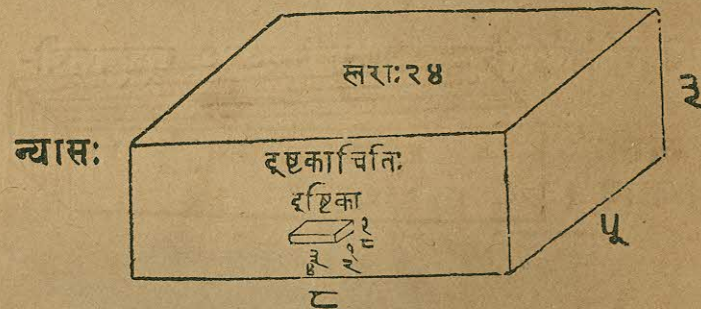 स्तराः २४
३
न्यासः
इष्टकाचितिः
इष्टिका
१
८
३ १
४ २
५
८